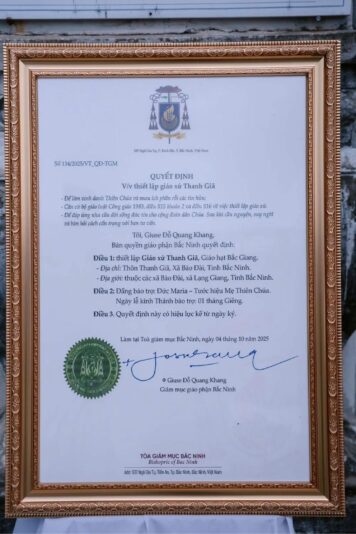 Số 116/2025/VT_QĐ-TGM
QUYẾT ĐỊNH
V/v thiết lập giáo xứ Thanh Giã
- Để làm vinh danh Thiên Chúa và mưu ích phần rỗi các tín hữu;
- Căn cứ bộ giáo luật Công giáo 1983, điều 515 khoản 2 và điều 516 về việc thiết lập giáo xứ;
- Để đáp ứng nhu cầu đời sống đức tin cho cộng đoàn dân Chúa. Sau khi cầu nguyện, suy nghĩ
và bàn hỏi cách cẩn trọng với ban tư vấn.
Tôi, Giuse Đỗ Quang Khang,
Bản quyền giáo phận Bắc Ninh quyết định:
Điều 1: thiết lập Giáo xứ Thanh Giã, Giáo hạt Bắc Giang,
- Địa chỉ: Thôn Thanh Giã, Xã Bảo Đài, Tỉnh Bắc Ninh.
- Địa giới: thuộc các xã Bảo Đài, xã Lạng Giang, Tỉnh Bắc Ninh.
Điều 2: Đấng bảo trợ: Đức Maria – Tước hiệu Mẹ Thiên Chúa.
Ngày lễ kính Thánh bảo trợ: 01 tháng Giêng.
Điều 3: Quyết định này có hiệu lực kể từ ngày ký.
Làm tại Toà giám mục Bắc Ninh, ngày 04 tháng 10 năm 2025
Giuse Đỗ Quang Khang
Giám mục giáo phận Bắc Ninh
TÒA GIÁM MỤC BẮC NINH
Bishopric of Bac Ninh